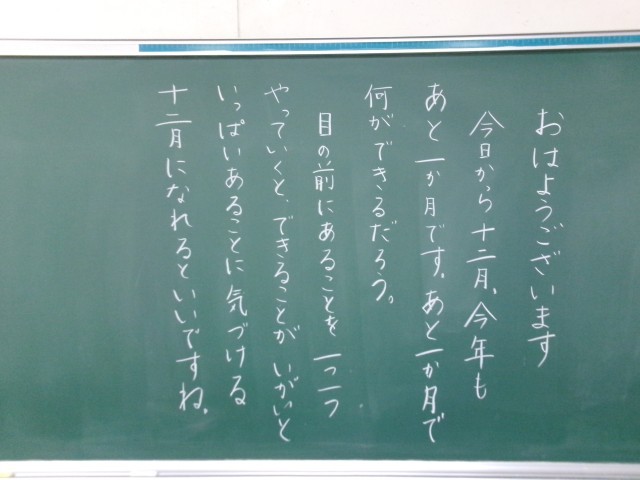 おはようございます
今日から十二月、今年も
あと一か月です。あと一か月で
何ができるだろう。
目の前にあることを一つ一つ
やっていくと、できることがいがいと
いっぱいあることに気づける
十二月になれるといいですね。